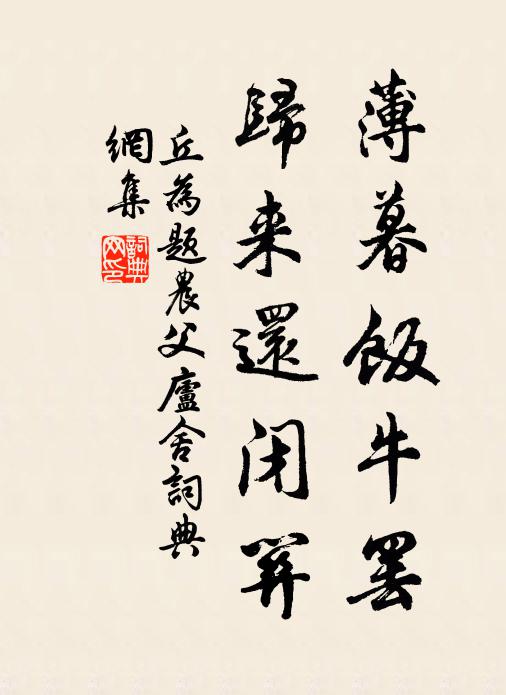 薄暮飯牛罷
歸来還閉關
丘為題農父廬舍詞典
網集
詞典
网印